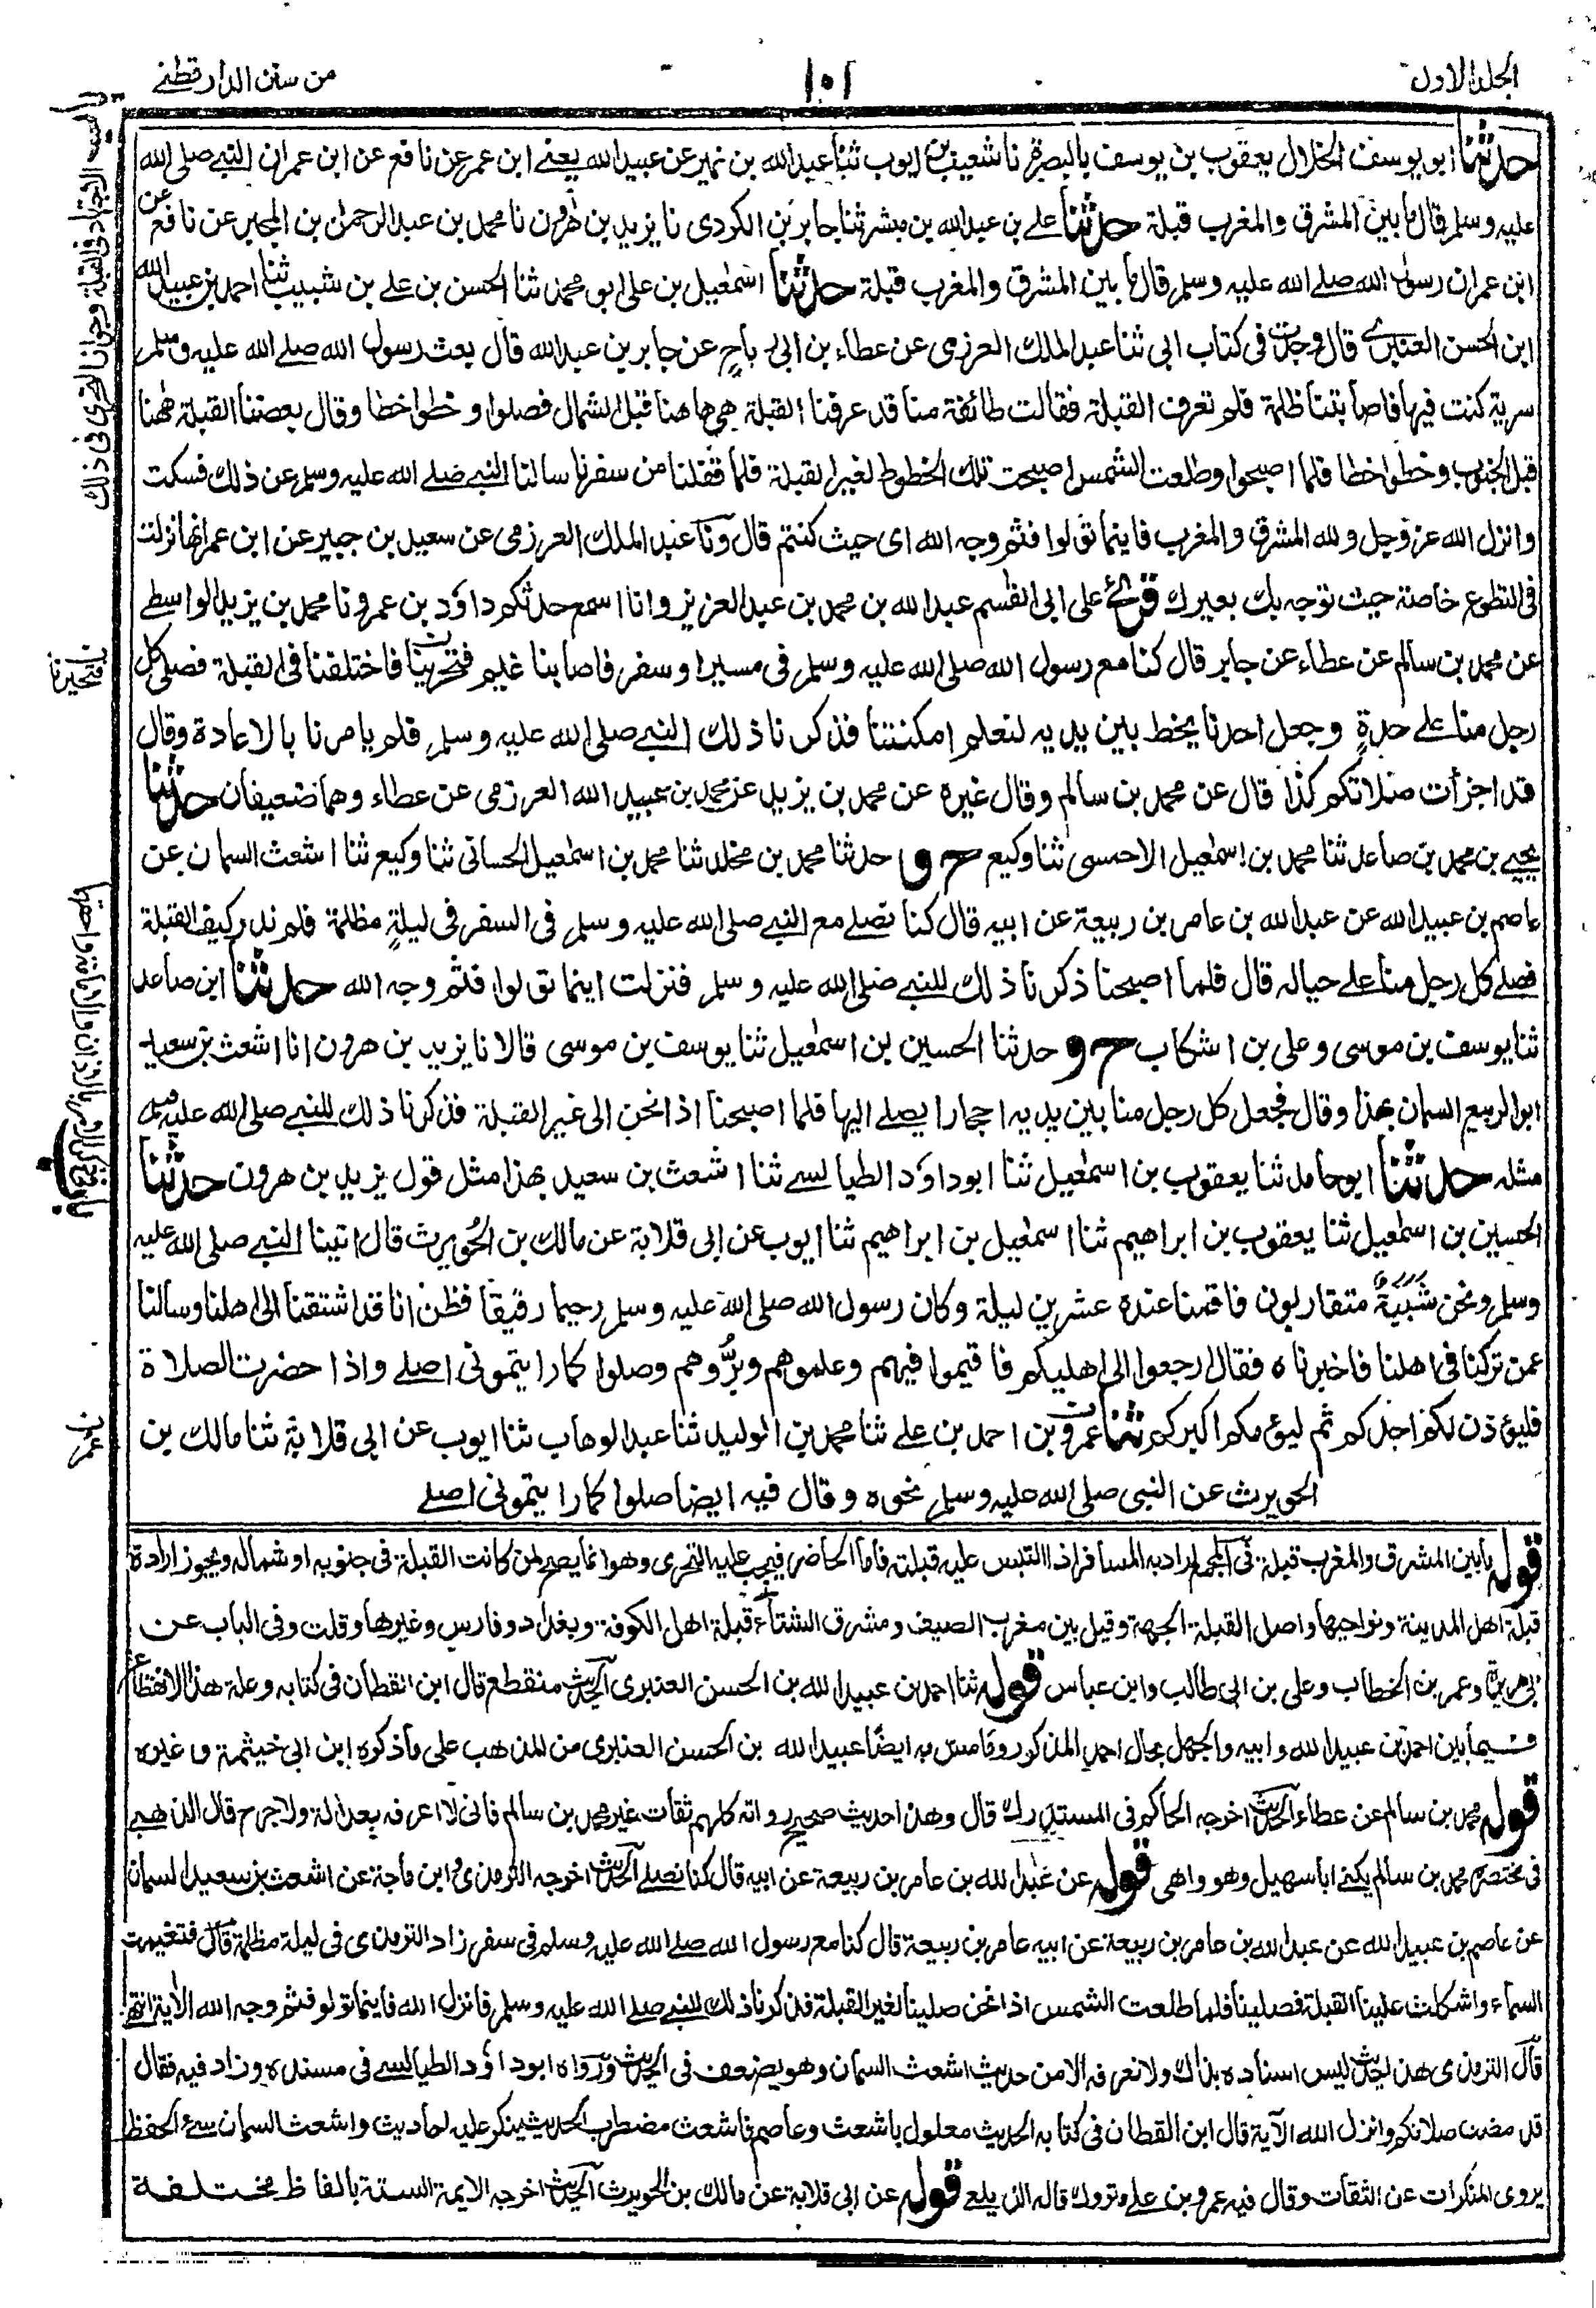 الجلد الاول
١٠١
من سنن الدارقطنے
حدثنا ابو يوسف الخلال يعقوب بن يوسف بالبصرة نا شعيب بن ايوب ثنا عبد الله بن نمير عن عبيد الله يعنے ابن عمر عن نافع عن ابن عمر ان النبے صلى الله
عليه وسلم قال ما بين المشرق والمغرب قبلة حدثنا علے بن عبد الله بن مبشر ثنا جابر بن الكردى نا يزيد بن هٰرون نا محمد بن عبد الرحمٰن بن المجبر عن نافع عن
ابن عمر ان رسول الله صلے الله عليه وسلم قال ما بين المشرق والمغرب قبلة حدثنا اسمٰعيل بن على ابو محمد ثنا الحسن بن علے بن شبيب ثنا احمد بن عبيد الله
ابن الحسن العنبرے قال وجدت فى كتاب ابى ثنا عبد الملك العرزمى عن عطاء بن ابى رباحٍ عن جابر بن عبد الله قال بعث رسول الله صلے الله عليه وسلم
سرية كنت فيها فاصابتنا ظلمة فلم تعرف القبلة فقالت طائفة منا قد عرفنا القبلة هى هاهنا قبل الشمال فصلوا وخطوا خطا وقال بعضنا القبلة هٰهنا
قبل الجنوب وخطوا خطا فلما اصبحوا وطلعت الشمس اصبحت تلك الخطوط لغير القبلة فلما قفلنا من سفرنا سالنا النبے صلے الله عليه وسلم عن ذلك فسكت
وانزل الله عز وجل ولله المشرق والمغرب فاينما تولوا فثم وجه الله اى حيث كنتم قال ونا عبد الملك العرزمى عن سعيد بن جبير عن ابن عمر انها نزلت
فى التطوع خاصة حيث توجه بك بعيرك قرئ على ابى القٰسم عبد الله بن محمد بن عبد العزيز وانا اسمع حدثكم داؤد بن عمرو نا محمد بن يزيد الواسطے
عن محمد بن سالم عن عطاء عن جابر قال كنا مع رسول الله صلى الله عليه وسلم فى مسير او سفر فاصابنا غيم فتحرينا فاختلفنا فى القبلة فصلى كل
رجل منا علے حدةٍ وجعل احدنا يخط بين يديه لنعلم امكنتنا فذكرنا ذلك النبے صلى الله عليه وسلم فلم يامرنا بالاعادة وقال
قد اجزأت صلاتكم كذا قال عن محمد بن سالم وقال غيره عن محمد بن يزيد عن محمد بن عبيد الله العرزمى عن عطاء وهما ضعيفان حدثنا
يحيے بن محمد بن صاعد ثنا محمد بن اسمٰعيل الاحمسى ثنا وكيع ح و حدثنا محمد بن مخلد ثنا محمد بن اسمٰعيل الحسانى ثنا وكيع ثنا اشعث السمان عن
عاصم بن عبيد الله عن عبد الله بن عامر بن ربيعة عن ابيه قال كنا نصلے مع النبے صلى الله عليه وسلم فى السفر فى ليلةٍ مظلمة فلم ندر كيف القبلة
فصلے كل رجل منا علے حياله قال فلما اصبحنا ذكرنا ذلك للنبے صلى الله عليه وسلم فنزلت اينما تولوا فثم وجه الله حدثنا ابن صاعد
ثنا يوسف بن موسى وعلى بن اشكاب ح و حدثنا الحسين بن اسمٰعيل ثنا يوسف بن موسى قالا نا يزيد بن هرون انا اشعث بن سعيد
ابو الربيع السمان بهذا وقال فجعل كل رجل منا بين يديه احجارا يصلے اليها فلما اصبحنا اذا نحن الى غير القبلة فذكرنا ذلك للنبے صلى الله عليه وسلم
مثله حدثنا ابو حامد ثنا يعقوب بن اسمٰعيل ثنا ابوداؤد الطيالسے ثنا اشعث بن سعيد بهذا مثل قول يزيد بن هرون حدثنا
الحسين بن اسمٰعيل ثنا يعقوب بن ابراهيم ثنا اسمٰعيل بن ابراهيم ثنا ايوب عن ابى قلابة عن مالك بن الحُويرث قال اتينا النبے صلى الله عليه
وسلم ونحن شَبَبَةٌ متقاربون فاقمنا عنده عشرين ليلة وكان رسول الله صلى الله عليه وسلم رحيما رفيقا فظن انا قد اشتقنا الى اهلنا وسالنا
عمن تركنا فى اهلنا فاخبرناه فقال ارجعوا الى اهليكم فاقيموا فيهم وعلموهم وبرُّوهم وصلوا كما رايتمونى اصلے واذا حضرت الصلاة
فليؤذن لكم احدكم ثم ليؤمكم اكبركم ثنا عمرو بن احمد بن علے ثنا محمد بن الوليد ثنا عبد الوهاب ثنا ايوب عن ابى قلابة ثنا مالك بن
الحويرث عن النبى صلى الله عليه وسلم نحوه وقال فيه ايضا صلوا كما رايتمونى اصلے
قوله ما بين المشرق والمغرب قبلة فى المجمع اراد به المسافر اذا التبس عليه قبلته فاما الحاضر فيجب عليه التحرى وهو انما يصح لمن كانت القبلة فى جنوبه او شماله ويجوز ارادة
قبلة اهل المدينة ونواحيها واصل القبلة الجهة وقيل بين مغرب الصيف ومشرق الشتاء قبلة اهل الكوفة وبغداد وفارس وغيرها وقلت وفى الباب عن
ابى هريرة وعمر بن الخطاب وعلى بن ابى طالب وابن عباس قوله ثنا احمد بن عبيد الله بن الحسن العنبرى الحديث منقطع قال ابن القطان فى كتابه وعلة هذا الانقطاع
فيما بين احمد بن عبيد الله وابيه والجهل بحال احمد المذكور وما مس به ايضًا عبيد الله بن الحسن العنبرى من المذهب على ما ذكره ابن ابى خيثمة وغيره
قوله محمد بن سالم عن عطاء الحديث اخرجه الحاكم فى المستدرك قال وهذا حديث صحيح رواته كلهم ثقات غير محمد بن سالم فانى لا اعرفه بعدالة ولا جرح قال الذهبے
فى مختصره محمد بن سالم يكنے ابا سهيل وهو واهى قوله عن عبد الله بن عامر بن ربيعة عن ابيه قال كنا نصلے الحديث اخرجه الترمذى وابن ماجة عن اشعث بن سعيد السمان
عن عاصم بن عبيد الله عن عبد الله بن عامر بن ربيعة عن ابيه عامر بن ربيعة قال كنا مع رسول الله صلے الله عليه وسلم فى سفر زاد الترمذى فى ليلة مظلمة قال فتغيمت
السماء واشكلت علينا القبلة فصلينا فلما طلعت الشمس اذا نحن صلينا لغير القبلة فذكرنا ذلك للنبے صلے الله عليه وسلم فانزل الله فاينما تولو فثم وجه الله الاية انتهى
قال الترمذى هذا لحديث ليس اسناده بذاك ولا نعرفه الا من حديث اشعث السمان وهو يضعف فى الحديث ورواه ابوداؤد الطيالسے فى مسنده وزاد فيه فقال
قد مضت صلاتكم وانزل الله الآية قال ابن القطان فى كتابه الحديث معلول باشعث وعاصم فاشعث مضطرب الحديث ينكر عليه احاديث واشعث السمان سئ الحفظ
يروى المنكرات عن الثقات وقال فيه عمرو بن علے متروك قاله الزيلعے قوله عن ابى قلابة عن مالك بن الحويرث الحديث اخرجه الايمة الستة بالفاظ مختلفة
باب الاجتهاد فى القبلة وجواز التحرى فى ذلك
فتحيرنا
عمر